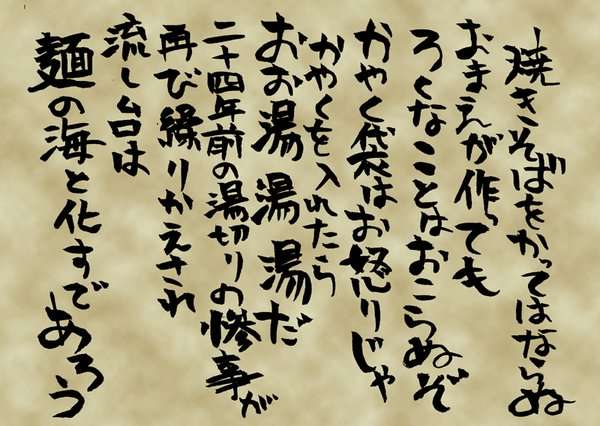 焼きそばをかってはならぬ
おまえが作っても
ろくなことはおこらぬぞ
かやく袋はお怒りじゃ
かやくを入れたら
おお湯湯湯だ
二十四年前の湯切りの惨事が
再び繰りかえされ
流し台は
麺の海と化すであろう